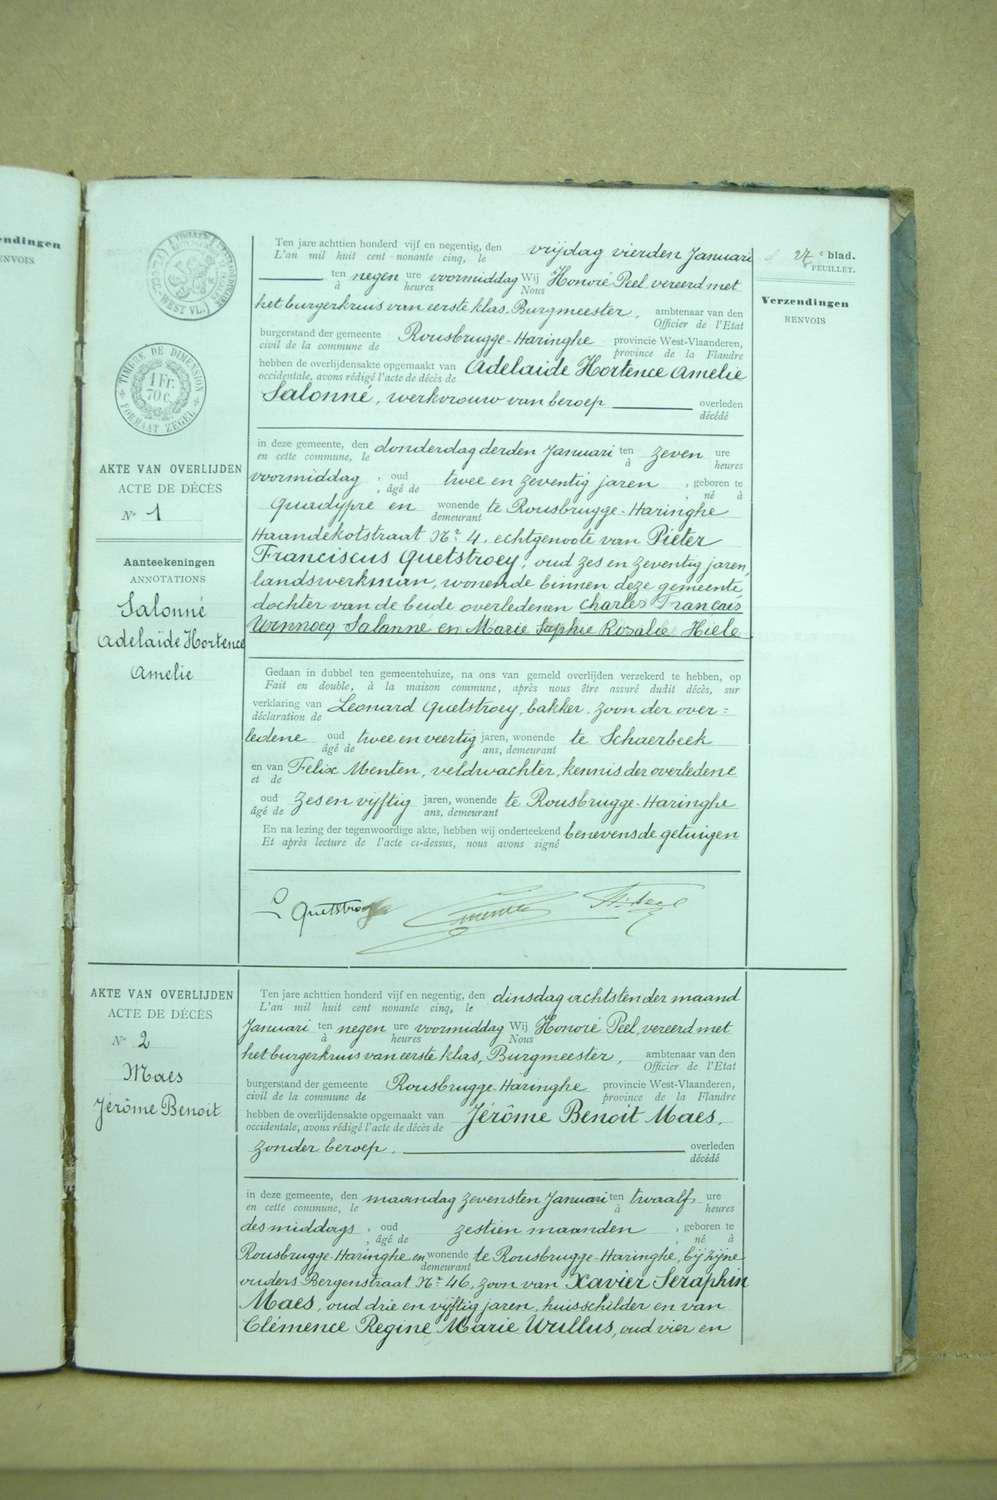 endingen
ENVOIS
27e blad.
FEUILLET.
Verzendingen
RENVOIS
TIMBRE DE DIMENSION
1 Fr.
70 c.
FORMAAT ZEGEL
AKTE VAN OVERLIJDEN
ACTE DE DÉCÈS
No 1
Aanteekeningen
ANNOTATIONS
Salonné
Adelaïde Hortence
Amelie
Ten jare achttien honderd vijf en negentig, den vrijdag vierden Januari
L'an mil huit cent nonante cinq, le
ten negen ure voormiddag Wij Honoré Peel, vereerd met
à heures Nous
het burgerkruis van eerste klas, Burgmeester, ambtenaar van den
Officier de l'Etat
burgerstand der gemeente Rousbrugge-Haringhe provincie West-Vlaanderen,
civil de la commune de province de la Flandre
hebben de overlijdensakte opgemaakt van Adelaide Hortence Amelie
occidentale, avons rédigé l'acte de décès de
Salonné, werkvrouw van beroep overleden
décédé
in deze gemeente, den donderdag derden Januari ten zeven ure
en cette commune, le à heures
voormiddag, oud twee en zeventig jaren, geboren te
, âgé de , né à
Quaedypre en wonende te Rousbrugge-Haringhe
demeurant
Haandekotstraat Nr 4, echtgenoote van Pieter
Franciscus Quetstroey, oud zes en zeventig jaren,
landswerkman, wonende binnen deze gemeente
dochter van de beide overledenen Charles Français
Winnocq Salanne en Marie Sophie Rosalie Hiele
Gedaan in dubbel ten gemeentehuize, na ons van gemeld overlijden verzekerd te hebben, op
Fait en double, à la maison commune, après nous être assuré dudit décès, sur
verklaring van Leonard Quetstroey, bakker, zoon der over=
déclaration de
ledene oud twee en veertig jaren, wonende te Schaerbeek
âgé de ans, demeurant
en van Felix Menten, veldwachter, kennis der overledene
et de
oud zes en vijftig jaren, wonende te Rousbrugge-Haringhe
âgé de ans, demeurant
En na lezing der tegenwoordige akte, hebben wij onderteekend benevens de getuigen
Et après lecture de l'acte ci-dessus, nous avons signé
L Quetstroey
AKTE VAN OVERLIJDEN
ACTE DE DÉCÈS
No 2
Maes
Jérôme Benoit
Ten jare achttien honderd vijf en negentig, den dinsdag achtsten der maand
L'an mil huit cent nonante cinq, le
Januari ten negen ure voormiddag Wij Honoré Peel, vereerd met
à heures Nous
het burgerkruis van eerste klas, Burgmeester, ambtenaar van den
Officier de l'Etat
burgerstand der gemeente Rousbrugge-Haringhe provincie West-Vlaanderen,
civil de la commune de province de la Flandre
hebben de overlijdensakte opgemaakt van Jérôme Benoit Maes,
occidentale, avons rédigé l'acte de décès de
zonder beroep, overleden
décédé
in deze gemeente, den maandag zevensten Januari ten twaalf ure
en cette commune, le à heures
des middags, oud zestien maanden, geboren te
, âgé de , né à
Rousbrugge-Haringhe en wonende te Rousbrugge-Haringhe, bij zijne
demeurant
ouders Bergenstraat Nr 46, zoon van Xavier Seraphin
Maes, oud drie en vijftig jaren, huisschilder en van
Clémence Regine Marie Wullus, oud vier en